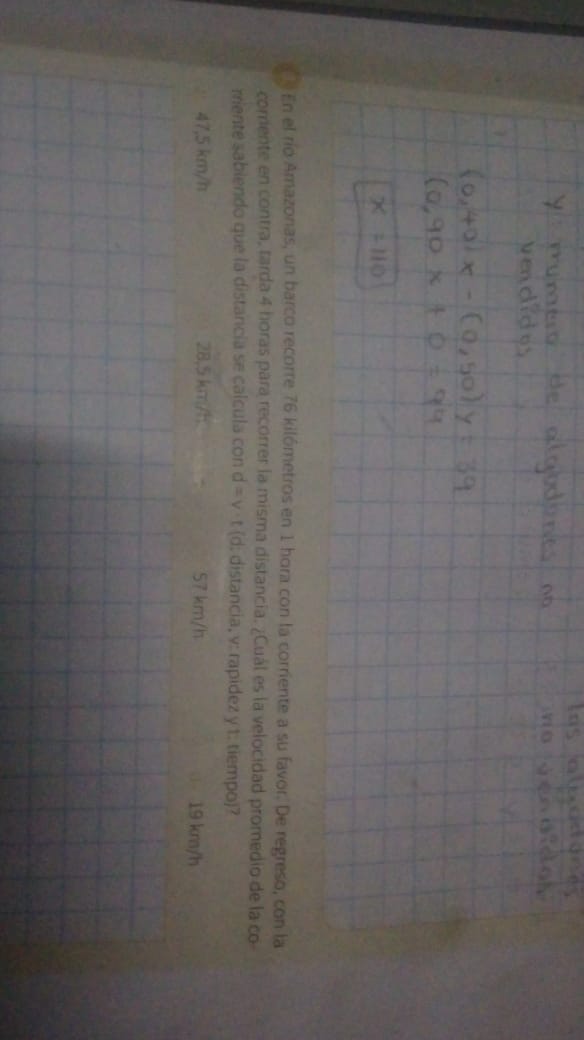 y = numero de algodones no
vendidos
los algodones
no vendidos
y
(0,40)x - (0,50)y = 39
(0,90 x + 0 = 99
x = 110
En el río Amazonas, un barco recorre 76 kilómetros en 1 hora con la corriente a su favor. De regreso, con la
corriente en contra, tarda 4 horas para recorrer la misma distancia. ¿Cuál es la velocidad promedio de la co-
rriente sabiendo que la distancia se calcula con d = v · t (d: distancia, v: rapidez y t: tiempo)?
47,5 km/h 28,5 km/h 57 km/h 19 km/h